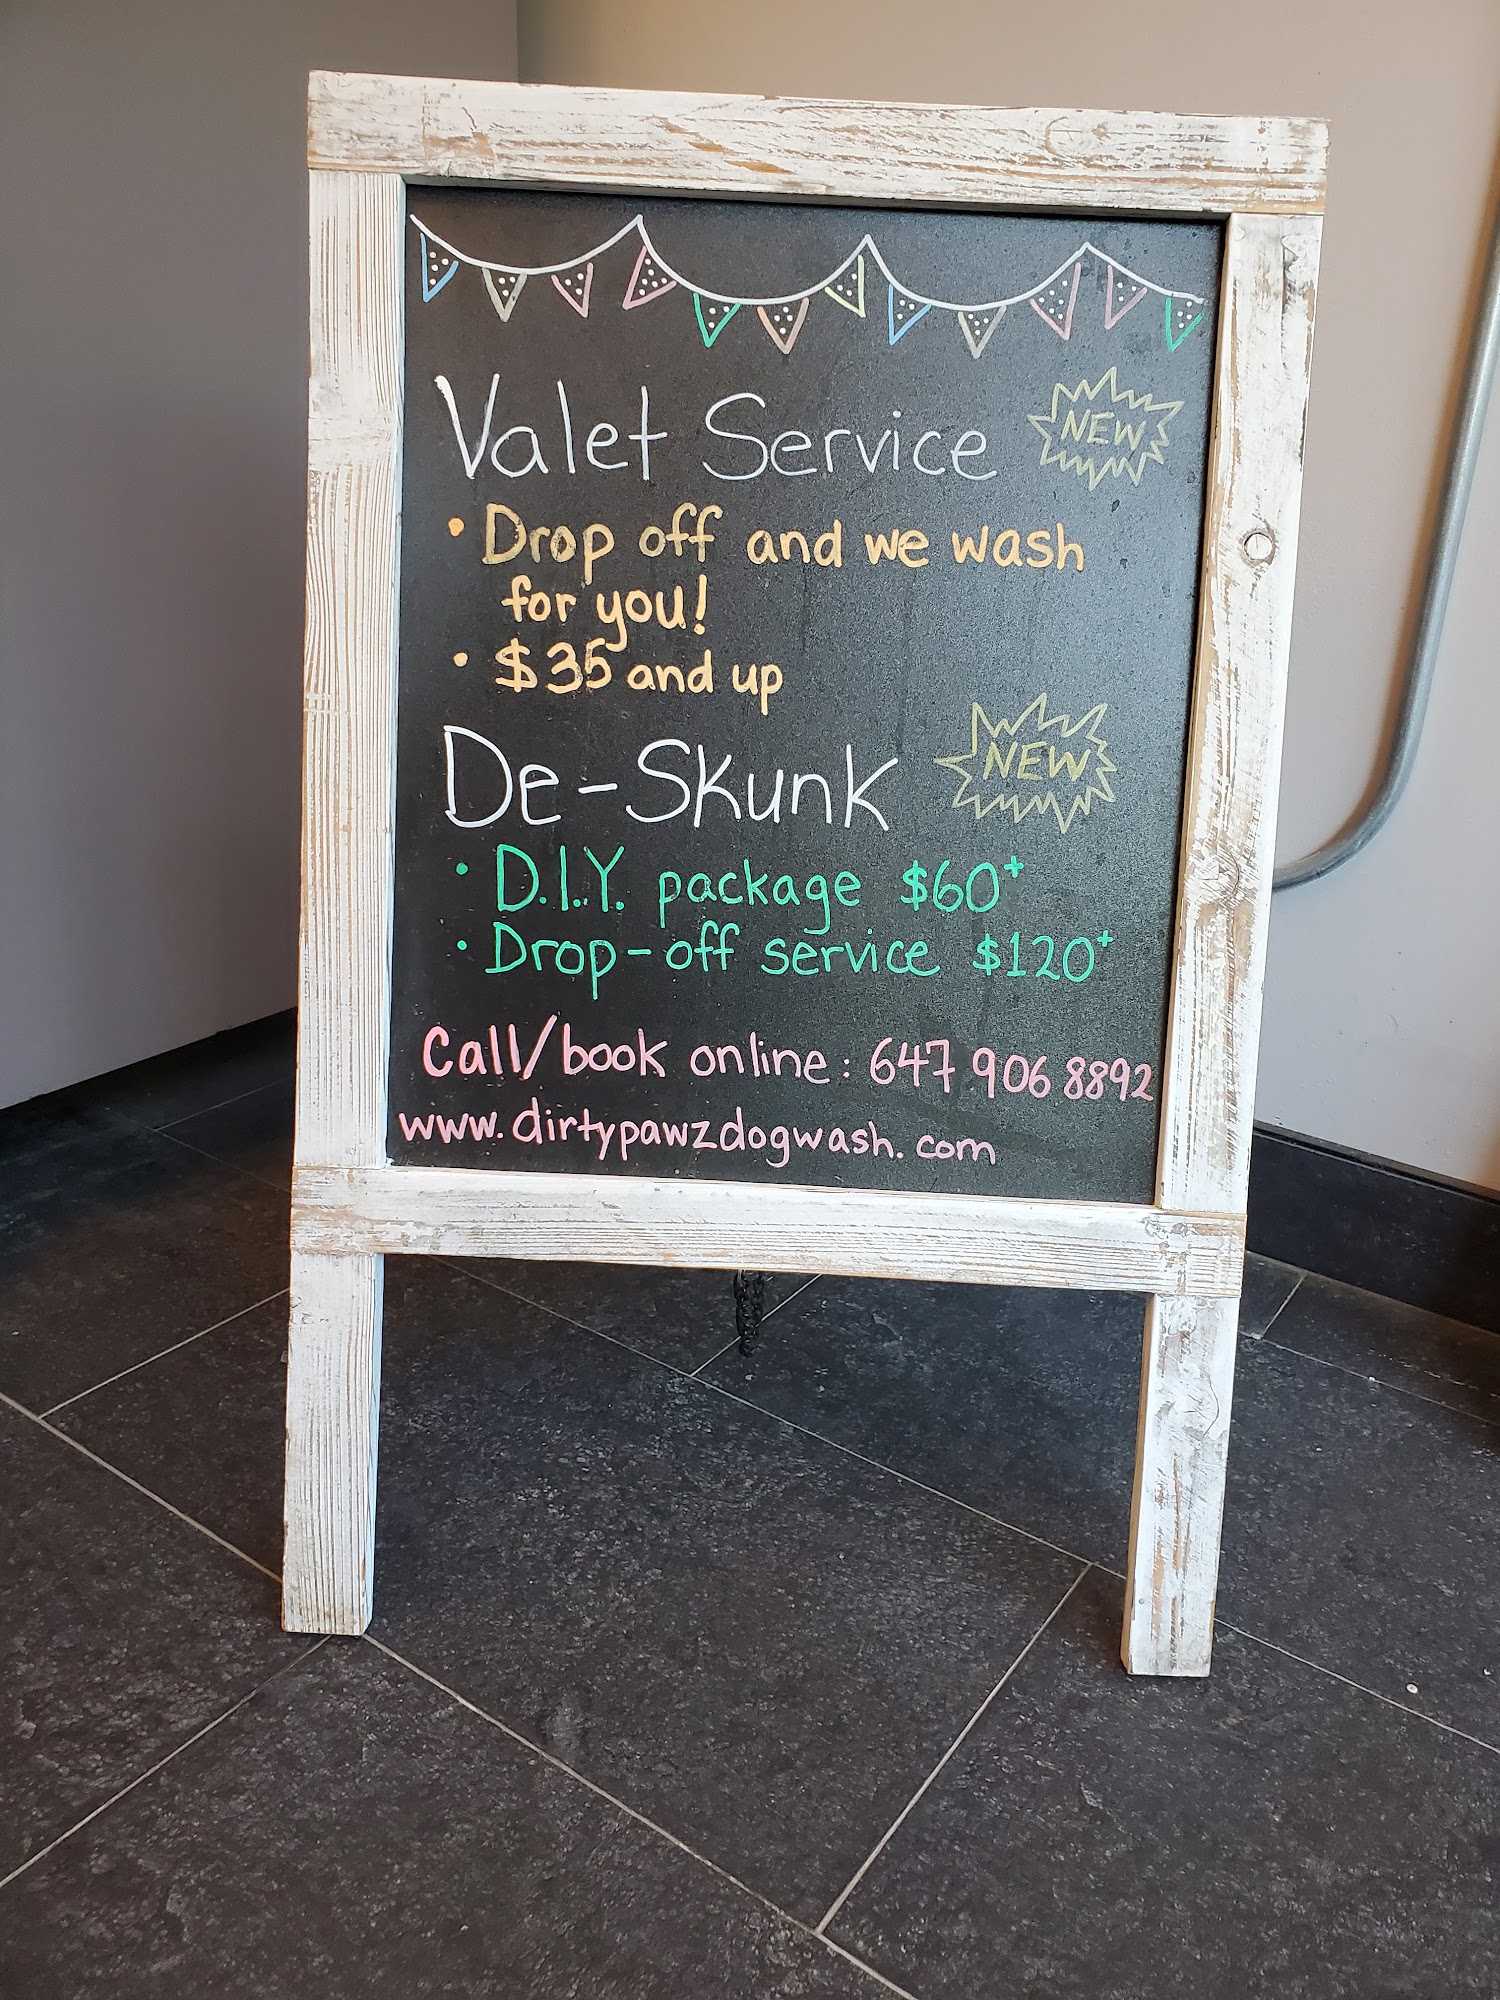 Valet Service NEW
• Drop off and we wash
for you!
• $35 and up
De-Skunk NEW
• D.I.Y. package $60+
• Drop-off service $120+
Call/book online: 647 906 8892
www.dirtypawzdogwash.com